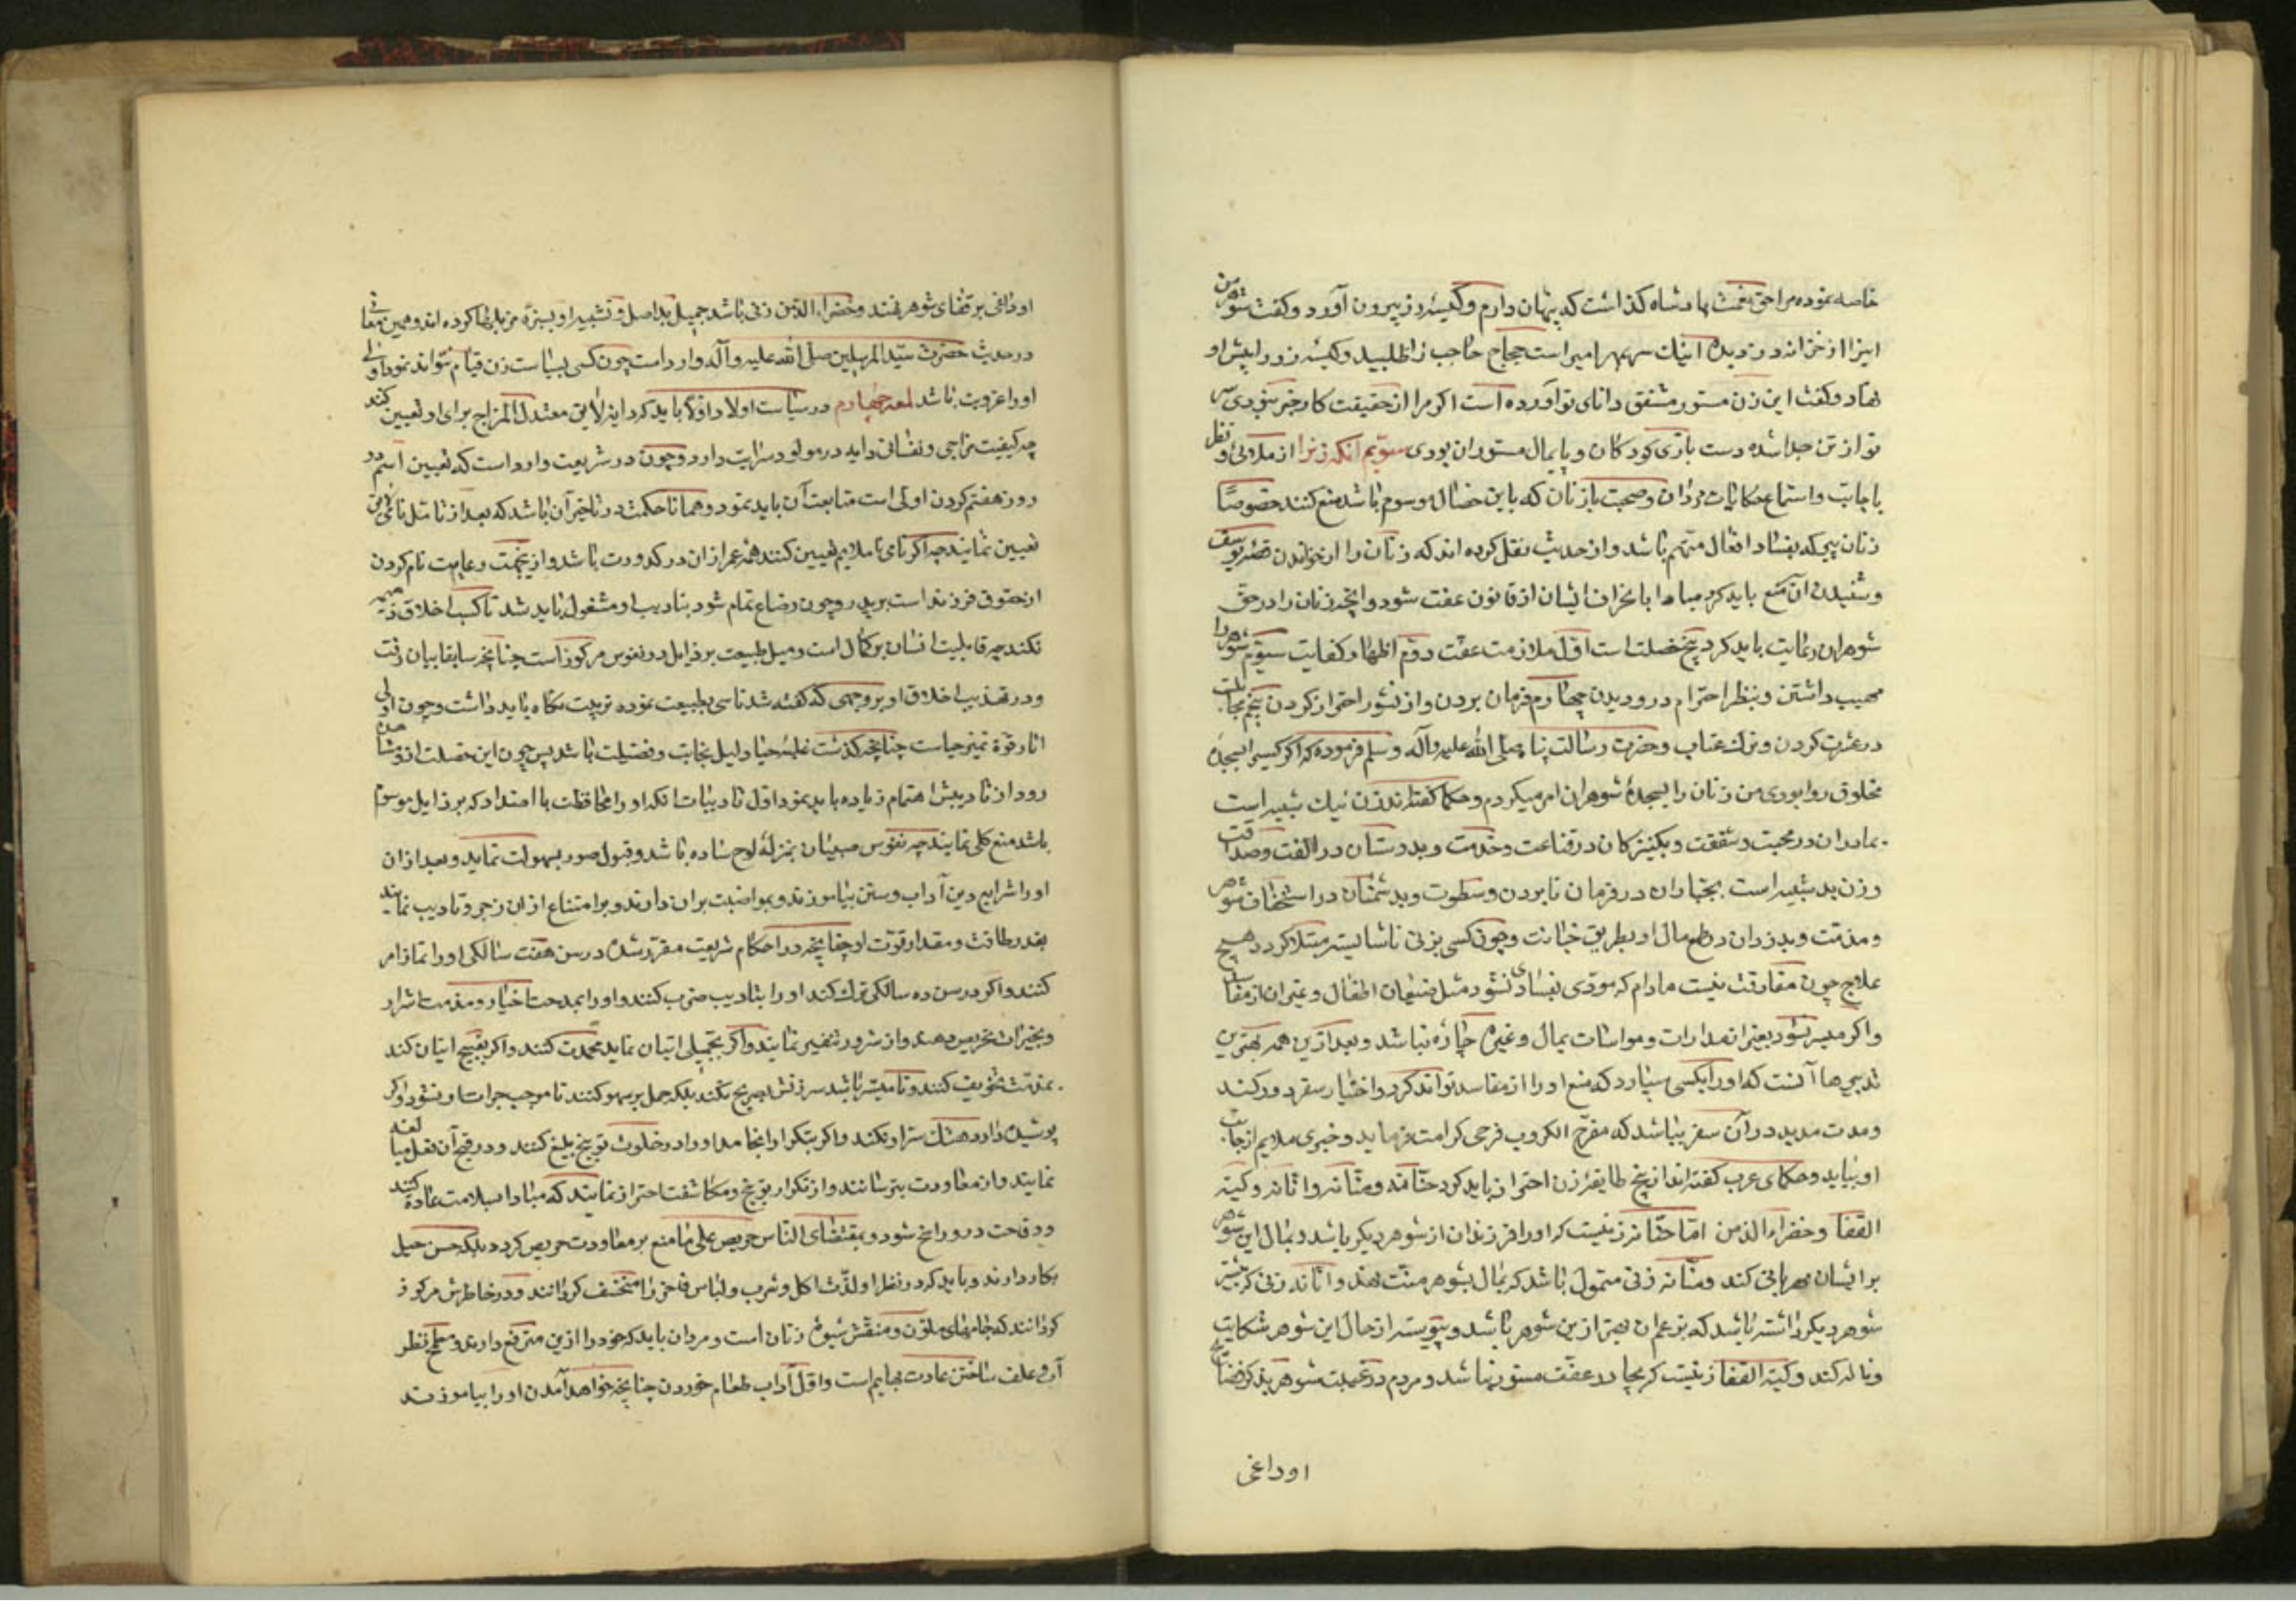 خاصه نموده مرا حق نعمت پادشاه کذاشت که پنهان دارم و کیسه زر بیرون آورد و کفت شوهر من
اینرا از خزانه دزدیده اینك سر بمهر امیر است حجاج حاجب را طلبید و کیسه زر در پیش او
نهاد و کفت این زن مستوره مشفق دانای تو آورده است اکر مرا از حقیقت کار خبر نبودی سر
تو از تن جدا شده دست بازی کودکان و پایمال ستوران بودی سیوّم آنکه زنرا از ملاهی و نظر
باجانب و استماع حکایات مردان و صحبت با زنان که باین خصال موسوم باشد منع کنند خصوصًا
زنان پیر که بفساد افعال متهم باشد و از حدیث نقل کرده اند که زنان را از خواندن قصه یوسف
و شنیدن آن منع باید کرد مبادا بانحراف ایشان از قانون عفت شود و آنچه زنان را در حق
شوهران رعایت باید کرد پنج خصلت است اوّل ملازمت عفّت دوّم اظهار کفایت سیوّم شوهر را
مهیب داشتن و بنظر احترام درو دیدن چهارم فرمان بردن و از نشوز احتراز کردن پنجم مجاملت
در عشرت کردن و ترك عتاب و حضرت رسالت پناه صلی الله علیه وآله وسلم فرموده که اکر کسیرا سجدهٔ
مخلوق روا بودی من زنان را بسجدهٔ شوهران امر میکردم و حکما کفته اند زن نیك شبیه است
بمادران در محبت و شفقت و بکنیزکان در قناعت و خدمت و بدوستان در الفت و صداقت
و زن بد شبیه است بجباران در فرمان نابردن و سطوت و بدشمنان در استخفاف شوهر
و مذمّت و بدزدان در طمع مال او بطریق خیانت و چون کسی بزنی ناشایسته مبتلا کردد هیچ
علاج چون مفارقت نیست مادام که مودّی بفسادی نشود مثل ضیعان اطفال و غیر آن از مفاسد
و اکر میسر نشود بغیر از مدارات و مواسات بمال و غیره چاره نباشد و بعد ازین همه بهترین
تدبیرها آنست که او را بکسی سپارد که منع او را از مفاسد تواند کرد و اختیار سفر دور کند
و مدت مدید در آن سفر بباشد که مفرّج الکروب فرحی کرامت فرماید و خبری ملایم از جانب
او بیاید و حکمای عرب کفته اند از پنج طایفه زن احتراز باید کرد حنّانه و منّانه و انّانه و کیّة
القفا و خضراء الدّمن امّا حنّانه زنیست که او را فرزندان از شوهر دیکر باشد و بمال این شوهر
بر ایشان مهربانی کند و منّانه زنی متمول باشد که بمال بشوهر منّت نهد و انّانه زنی که پیشتر
شوهر دیکر داشته باشد که بزعم ان بهتر ازین شوهر باشد و پیوسته از حال این شوهر شکایت
و ناله کند و کیّة القفا زنیست که بچادر عفّت مستور نباشد و مردم در غیبت شوهر بذکر فضایح
او داغی
او داغی بر قفای شوهر نهند و خضراء الدّمن زنی باشد جمیل بد اصل و تشبیه او بسبزهٔ مزبله ها کرده اند و همین معانی
در حدیث حضرت سیّد المرسلین صلی الله علیه وآله وارد است چون کسی بسیاست زن قیام نتواند نمود اولی
او را عزوبت باشد لمعه چهارم در سیاست اولاد اوّلا باید که دایه لایق معتدل المزاج برای او تعیین کنند
چه کیفیت مزاجی و نفسانی دایه در مولود سرایت دارد و چون در شریعت وارد است که تعیین اسم در
روز هفتم کردن اولی است متابعت آن باید نمود و همانا حکمت در تاخیر آن باشد که بعد از تامّل نامی لایق
تعیین نمایند چه اکر نامی ناملایم تعیین کنند همه عمر از ان در کدورت باشد و ازینجهت رعایت نام کردن
از حقوق فرزند است بر پدر و چون رضاع تمام شود بتادیب او مشغول باید شد تا کسب اخلاق ذمیمه
نکند چه قابلیت انسان بر کمال است و میل طبیعت بر ذایل در نفوس مرکوز است چنانچه سابقا بیان رفت
و در تهذیب اخلاق او بر وجهی که کفته شد تاسی بطبیعت نموده ترتیب نکاه باید داشت و چون اولی
اثار قوّة تمیز حیاست چنانچه کذشت غلبهٔ حیا دلیل نجابت و فضیلت باشد پس چون این خصلت ازو مشاهده
رود از تادیبش اهتمام زیاده باید نمود اوّل تادیبات انکه او را محافظت با اضداد که برذایل موسوم
باشد منع کلی نمایند چه نفوس صبیان بمنزلهٔ لوح ساده باشد و قبول صور بسهولت نماید و بعد از ان
او را شرایع دین آداب و سنن بیاموزند و بمواضبت بران دارند و بر امتناع از ان زجر و تادیب نمایند
بقدر طاقت و مقدار قوّت او چنانچه در احکام شریعت مقرّر شده در سن هفت سالکی او را بنماز امر
کنند و اکر در سن ده سالکی ترك کند او را بتادیب ضرب کنند و او را بمدحت اخیار و مذمت اشرار
و بخیرات تحریص دهند و از شرور تنفیر نمایند و اکر بجمیلی اتیان نماید محمدت کنند و اکر بقبیح اتیان کند
بمذمّت تخویف کنند و تا میسّر باشد سرزنش صریح نکند بلکه حمل بر سهو کنند تا موجب جرات او نشود و اکر
پوشیده دارد هتك ستر او نکند و اکر بتکرار انجامد او را در خلوت توبیخ بلیغ کنند و در قبح آن فعل مبالغه
نمایند و از معاودت بترسانند و از تکرار توبیخ و مکاشفت احتراز نمایند که مبادا بملامت عادة کنند
و وقاحت درو راسخ شود و بمقتضای النّاس حریص علی ما منع بر معاودت حریص کردد بلکه حسن حیل
بکار دارند و باید که در نظر او لذّت اکل و شرب و لباس فاخر را مستخف کردانند و در خاطرش مرکوز
کردانند که جامهای ملوّن و منقّش شیوهٔ زنان است و مردان باید که خود را ازین مترفع دارند و مطمح نظر
آب و علف ساختن عادت بهایم است و اوّل آداب طعام خوردن چنانچه خواهد آمدن او را بیاموزند